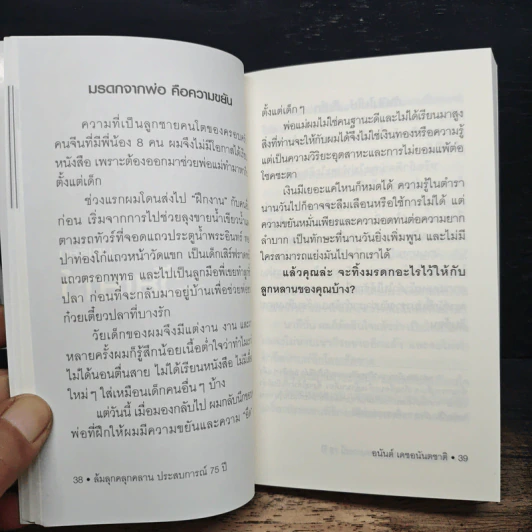 มรดกจากพ่อ คือความขยัน
ความที่เป็นลูกชายคนโตของครอบครัว
คนจีนที่มีพี่น้อง 8 คน ผมจึงไม่มีโอกาสได้เรียน
หนังสือ เพราะต้องออกมาช่วยพ่อแม่ทำมาหากิน
ตั้งแต่เด็ก
ช่วงแรกผมโดนส่งไป "ฝึกงาน" กับคน
ก่อน เริ่มจากการไปช่วยลุงขายน้ำเขียวน้ำ
ตามรถทัวร์ที่จอดแถวประตูน้ำพระอินทร์
ปาท่องโก๋แถวหน้าวัดแขก เป็นเด็กเสิร์ฟ
แถวตรอกพุทธ และไปเป็นลูกมือพี่เขย
ปลา ก่อนที่จะกลับมาอยู่บ้านเพื่อช่วยพ่อ
ก๋วยเตี๋ยวปลาที่บางรัก
วัยเด็กของผมจึงมีแต่งาน งาน และ
หลายครั้งผมก็รู้สึกน้อยเนื้อต่ำใจว่าทำไม
ไม่ได้นอนตื่นสาย ไม่ได้เรียนหนังสือ ไม่มี
ใหม่ๆ ใส่เหมือนเด็กคนอื่นๆ บ้าง
แต่วันนี้ เมื่อมองกลับไป ผมกลับนึกขอบ
พ่อที่ฝึกให้ผมมีความขยันและความ "อึด"
38 • ล้มลุกคลุกคลาน ประสบการณ์ 75 ปี
ตั้งแต่เด็กๆ
พ่อแม่ผมไม่ใช่คนฐานะดีและไม่ได้เรียนมาสูง
สิ่งที่ท่านจะให้กับผมได้จึงไม่ใช่เงินทองหรือความรู้
แต่เป็นความวิริยะอุตสาหะและการไม่ยอมแพ้ต่อ
โชคชะตา
เงินมีเยอะแค่ไหนก็หมดได้ ความรู้ในตำรา
นานวันไปก็อาจจะลืมเลือนหรือใช้การไม่ได้ แต่
ความขยันหมั่นเพียรและความอดทนต่อความยาก
ลำบาก เป็นทักษะที่นานวันยิ่งเพิ่มพูน และไม่มี
ใครสามารถแย่งมันไปจากเราได้
แล้วคุณล่ะ จะทิ้งมรดกอะไรไว้ให้กับ
ลูกหลานของคุณบ้าง?
อนันต์ เดชอนันตชาติ • 39